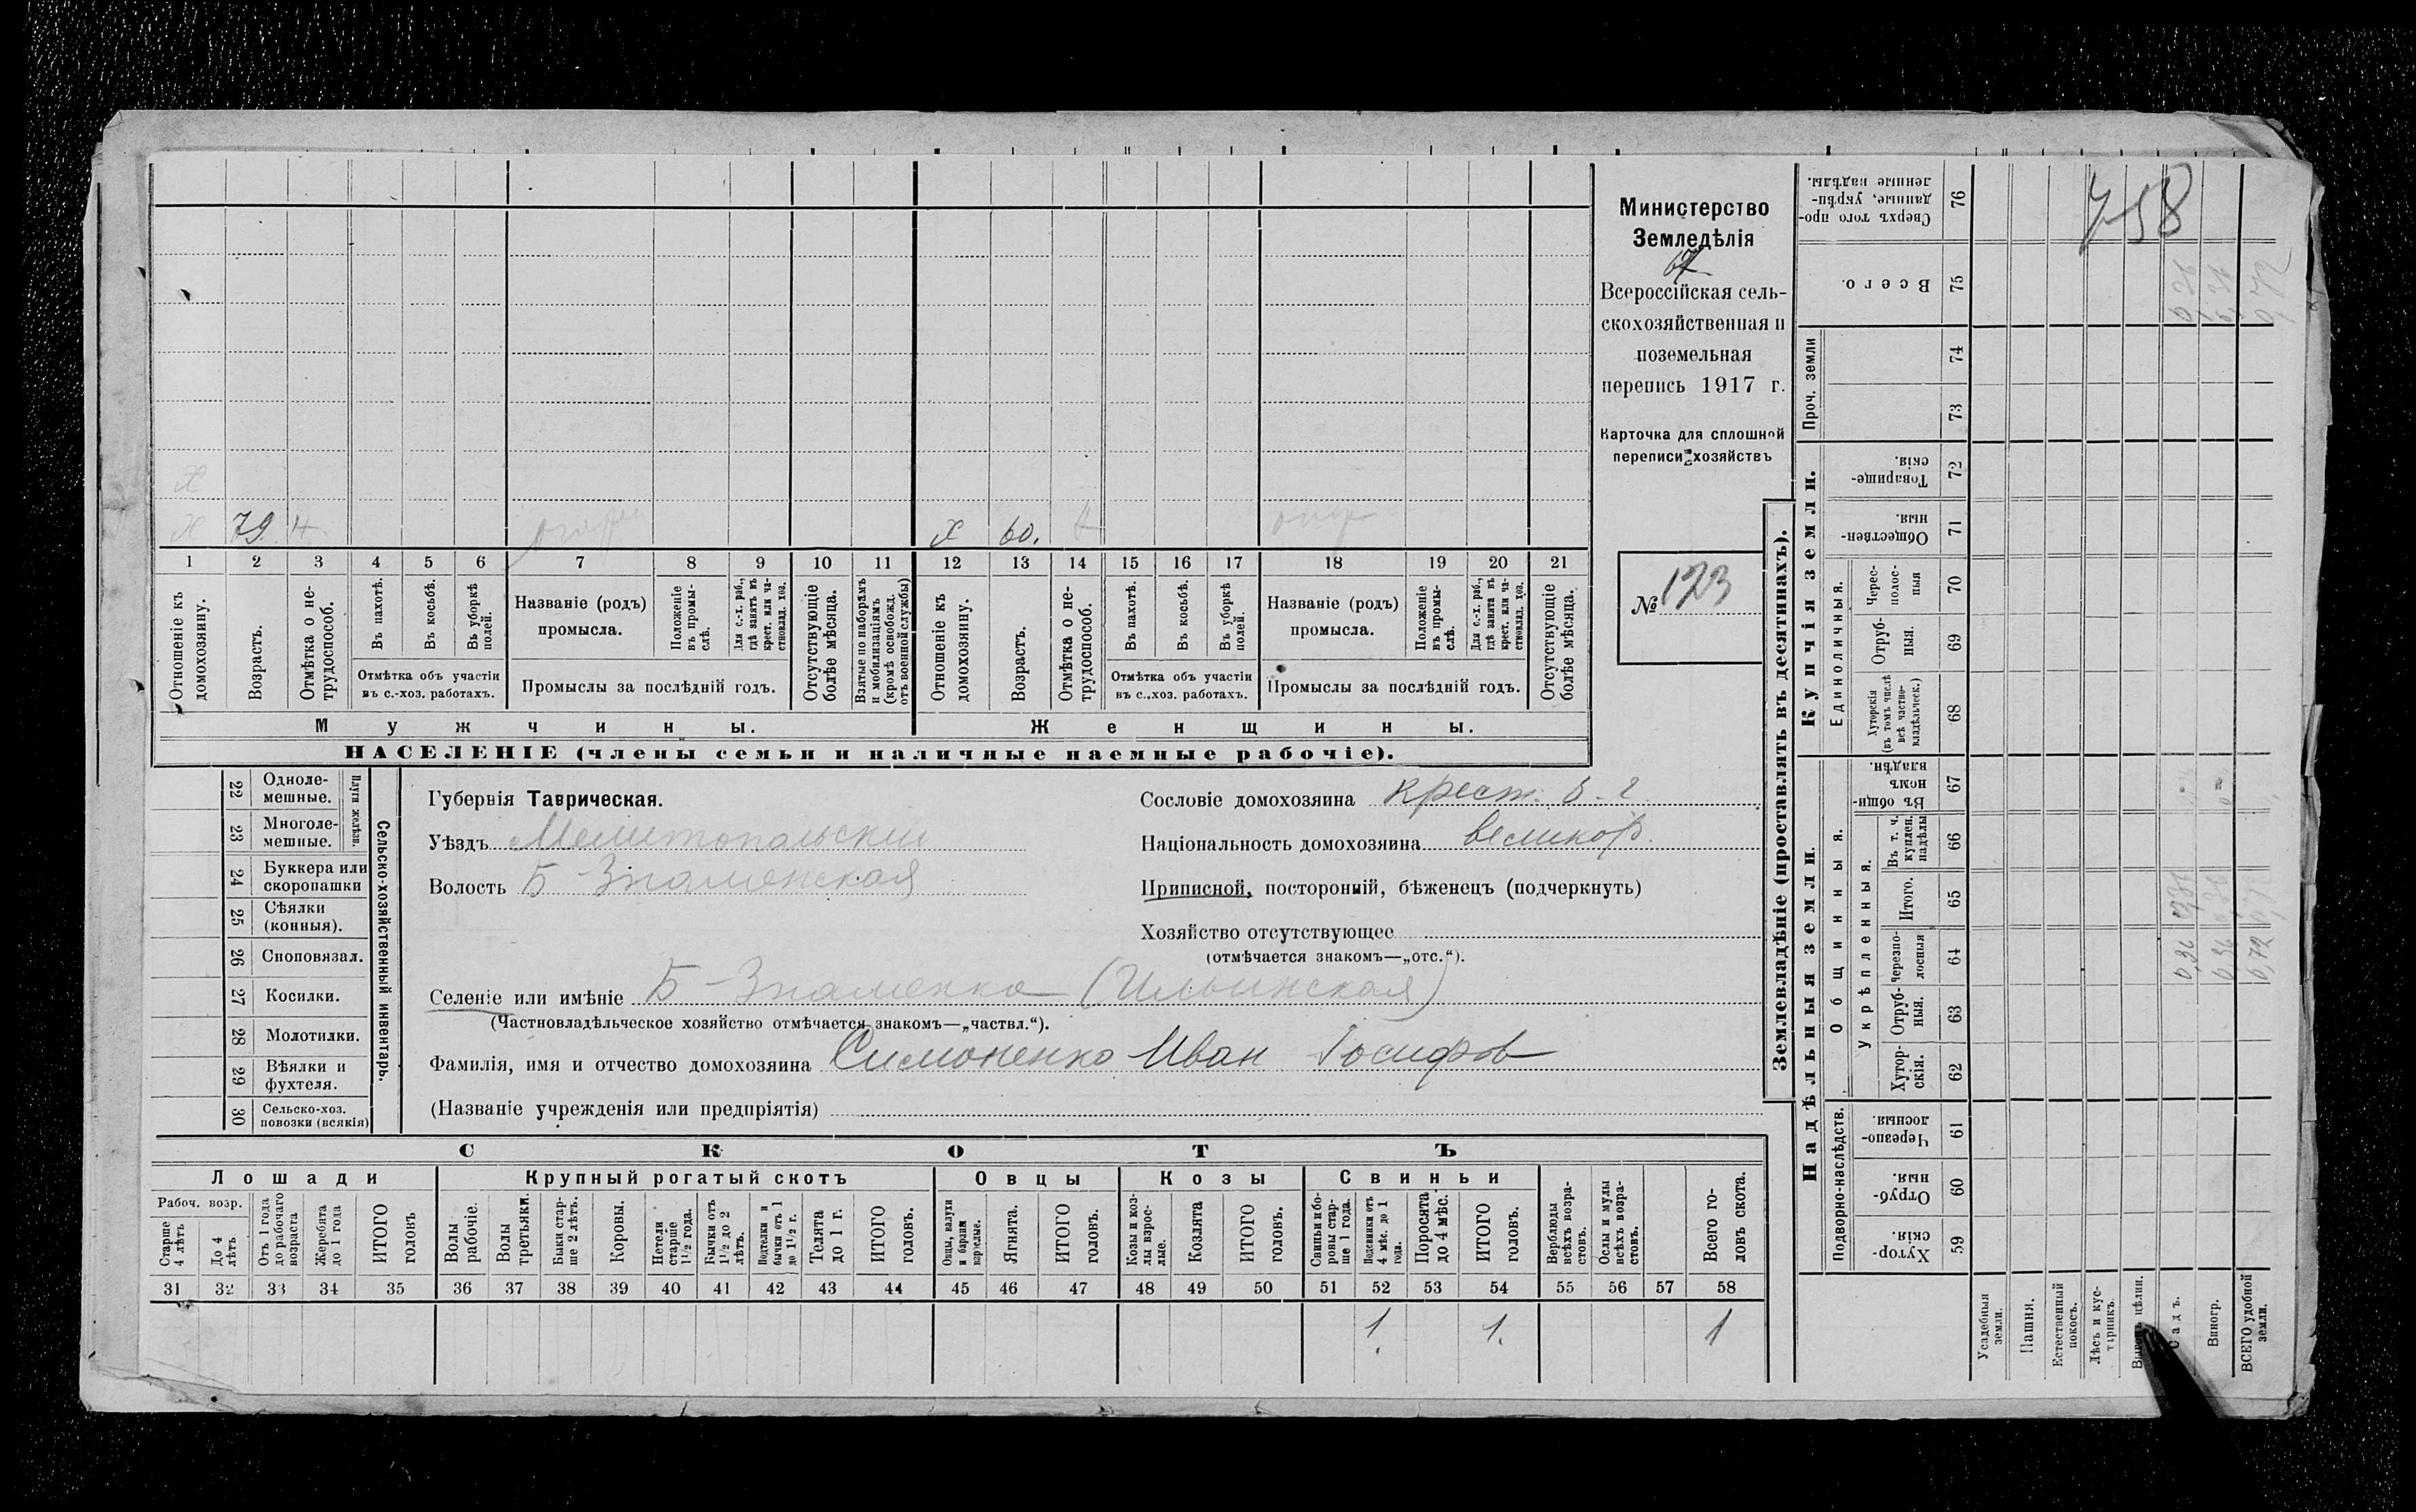 Министерство
Земледѣлія
Всероссійская сель-
скохозяйственная и
поземельная
перепись 1917 г.
Карточка для сплошной
переписи хозяйствъ
№ 123
Х
Х 79. Н.
Х 60.
1 2 3 4 5 6 7 8 9 10 11 12 13 14 15 16 17 18 19 20 21
Отношеніе къ домохозяину.
Возрастъ.
Отмѣтка о не-трудоспособ.
Въ пахотѣ.
Въ косьбѣ.
Въ уборкѣ полей.
Отмѣтка объ участіи
въ с.-хоз. работахъ.
Названіе (родъ)
промысла.
Положеніе въ промы-слѣ.
Для с.-х. раб., гдѣ занятъ въ крест. или ча-стновлад. хоз.
Промыслы за послѣдній годъ.
Отсутствующіе болѣе мѣсяца.
Взятые по наборамъ и мобилизаціямъ (кромѣ освобожд. отъ военной службы)
Отношеніе къ домохозяину.
Возрастъ.
Отмѣтка о не-трудоспособ.
Въ пахотѣ.
Въ косьбѣ.
Въ уборкѣ полей.
Отмѣтка объ участіи
въ с.-хоз. работахъ.
Названіе (родъ)
промысла.
Положеніе въ промы-слѣ.
Для с.-х. раб., гдѣ занята въ крест. или ча-стновлад. хоз.
Промыслы за послѣдній годъ.
Отсутствующіе болѣе мѣсяца.
Мужчины.
Женщины.
НАСЕЛЕНІЕ (члены семьи и наличные наемные рабочіе).
22 Одноле-мешные.
23 Многоле-мешные.
Плуги желѣзн.
24 Буккера или скоропашки
25 Сѣялки (конныя).
26 Сноповязал.
27 Косилки.
28 Молотилки.
29 Вѣялки и фухтеля.
30 Сельско-хоз. повозки (всякія)
Сельско-хозяйственный инвентарь.
Губернія Таврическая.
Уѣздъ Мелитопальский
Волость Б Знаменская
Сословіе домохозяина крест. б. г.
Національность домохозяина великор.
Приписной, посторонній, бѣженецъ (подчеркнуть)
Хозяйство отсутствующее
(отмѣчается знакомъ—„отс.“).
Селеніе или имѣніе Б-Знаменка (Ильинская)
(Частновладѣльческое хозяйство отмѣчается знакомъ—„частвл.“).
Фамилія, имя и отчество домохозяина Симоненко Иван Іосифов
(Названіе учрежденія или предпріятія)
СКОТЪ
Лошади
Крупный рогатый скотъ
Овцы
Козы
Свиньи
Рабоч. возр.
Старше 4 лѣтъ
До 4 лѣтъ
Отъ 1 года до рабочаго возраста
Жеребята до 1 года
ИТОГО головъ
Волы рабочіе.
Волы третьяки.
Быки стар-ше 2 лѣтъ.
Коровы.
Нетели старше 1½ года.
Бычки отъ 1½ до 2 лѣтъ.
Подтелки и бычки отъ 1 до 1½ г.
Телята до 1 г.
ИТОГО головъ.
Овцы, валухи и бараны взрослые.
Ягнята.
ИТОГО головъ.
Козы и коз-лы взрос-лые.
Козлята
ИТОГО головъ.
Свиньи и бо-ровы стар-ше 1 года.
Подсвинки отъ 4 мѣс. до 1 года.
Поросята до 4 мѣс.
ИТОГО головъ.
Верблюды всѣхъ возра-стовъ.
Ослы и мулы всѣхъ возра-стовъ.
Всего го-ловъ скота.
31 32 33 34 35 36 37 38 39 40 41 42 43 44 45 46 47 48 49 50 51 52 53 54 55 56 57 58
1 1. 1
Землевладѣніе (проставлять въ десятинахъ).
Надѣльныя земли.
Купчія земли.
Проч. земли
Общинныя.
Укрѣпленныя.
Подворно-наслѣдств.
Единоличныя.
Сверхъ того про-данные, укрѣп-ленные надѣлы. 76
Всего. 75
74
73
Товарище-скія. 72
Обществен-ныя. 71
Черес-полос-ныя 70
Отруб-ныя. 69
Хуторскія (въ томъ числѣ всѣ частно-владѣльческ.) 68
Въ общин-номъ владѣн. 67
Въ т. ч. куплен. надѣлы 66
Итого. 65
Черезпо-лосныя 64
Отруб-ныя. 63
Хутор-скія. 62
Черезпо-лосныя 61
Отруб-ныя. 60
Хутор-скія. 59
Усадебныя земли.
Пашня.
Естественный покосъ.
Лѣсъ и кус-тарникъ.
Садъ.
Виногр.
ВСЕГО удобной земли.
0,36
0,36
0,72